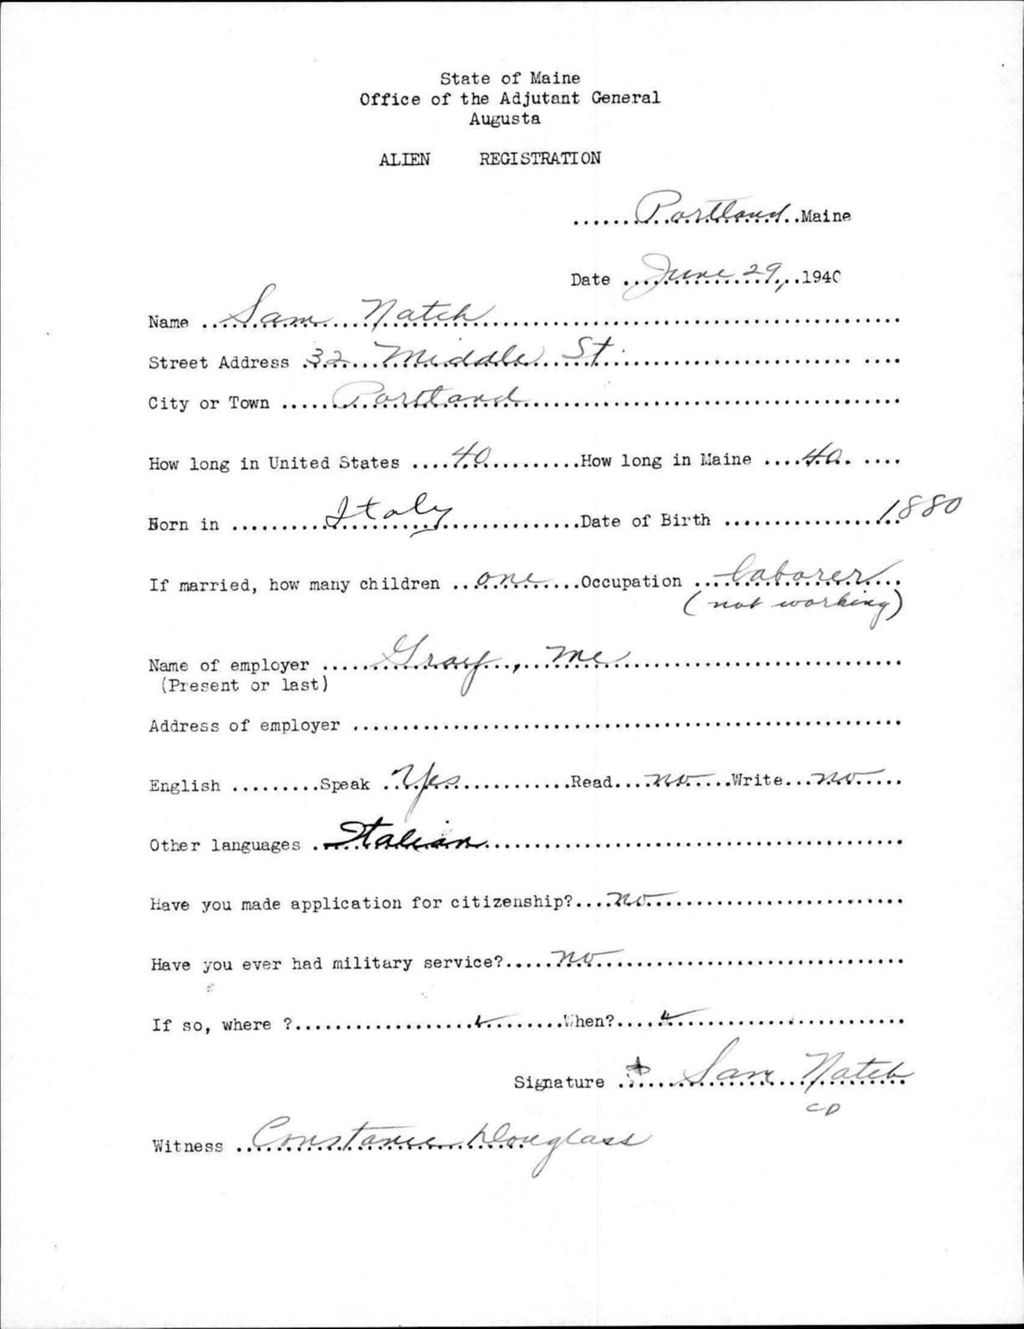 State of Maine
Office of the Adjutant General
Augusta
ALIEN REGISTRATION
.......Portland..Maine
Date ...June 29,..1940
Name ...Sam Natch...
Street Address .32 Middle St...
City or Town ......Portland...
How long in United States ....40..........How long in Maine ....40. ....
Born in ..........Italy.............Date of Birth ................1880
If married, how many children ..one......Occupation ...laborer...
(not working)
Name of employer .....Gray, Me...
(Present or last)
Address of employer ...
English .........Speak ..Yes............Read....no....Write...no.....
Other languages ...Italian...
Have you made application for citizenship?....no...
Have you ever had military service?.....no...
If so, where ?...When?...
Signature ...Sam Natch
CD
Witness ..Constance Douglass